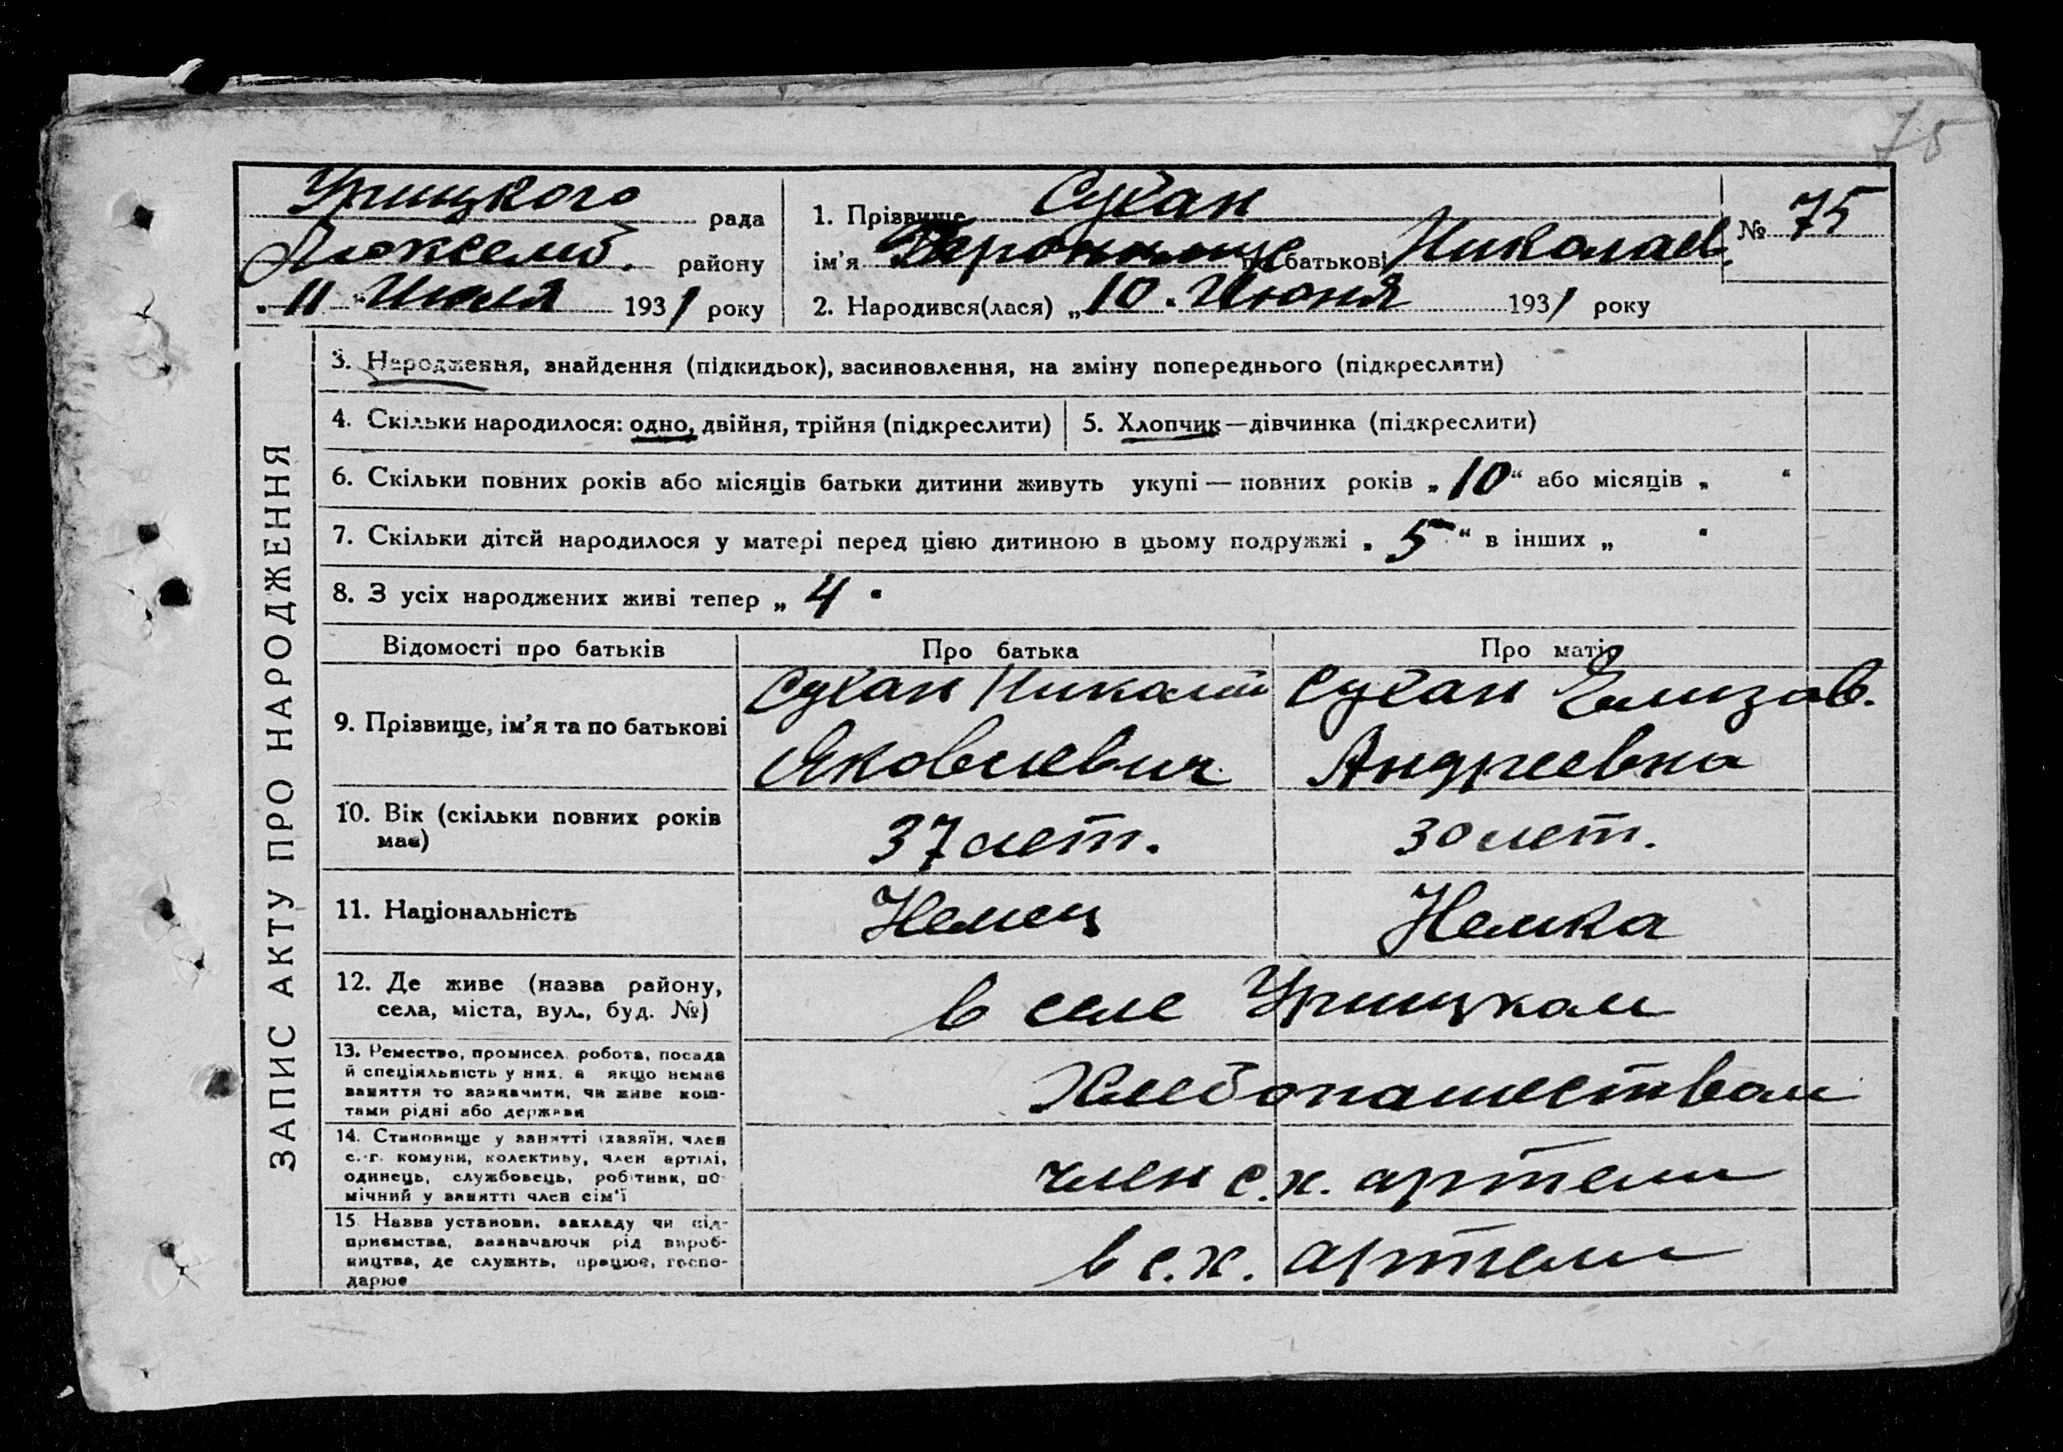 75
Урицкого рада
Люксемб. району
„11 “ Июля 1931 року
1. Прізвище Сухан
ім’я по батькові Николаев.
№ 75
2. Народився(лася) „10 “ Июня 1931 року
ЗАПИС АКТУ ПРО НАРОДЖЕННЯ
3. Народження, знайдення (підкидьок), засиновлення, на зміну попереднього (підкреслити)
4. Скільки народилося: одно, двійня, трійня (підкреслити)
5. Хлопчик—дівчинка (підкреслити)
6. Скільки повних років або місяців батьки дитини живуть укупі — повних років „10“ або місяців „ “
7. Скільки дітей народилося у матері перед цією дитиною в цьому подружжі „5“ в інших „ “
8. З усіх народжених живі тепер „4“
Відомості про батьків
Про батька
Про матір
9. Прізвище, ім’я та по батькові
Сухан Николай
Яковлевич
Сухан Елизав.
Андреевна
10. Вік (скільки повних років
має)
37 лет.
30 лет.
11. Національність
Немец
Немка
12. Де живе (назва району,
села, міста, вул., буд. №)
в селе Урицком
13. Ремество, промисел, робота, посада
й спеціяльність у них, а якщо немає
заняття то зазначити, чи живе кош-
тами рідні або держави
Хлебопашеством
14. Становище у занятті (хазяїн, член
с.-г. комуни, колективу, член артілі,
одинець, службовець, робітник, по-
мічний у занятті член сім’ї
член с.х. артели
15. Назва установи, закладу чи під-
приємства, зазначаючи рід вироб-
ництва, де служить, працює, госпо-
дарює
в с.х. артели